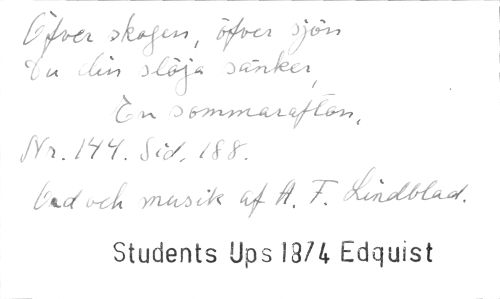 Öfver skogen, öfver sjön
Du din slöja sänker,
En sommarafton,
Nr. 144. Sid. 188.
Ord och musik af A. F. Lindblad.
Students Ups 1874 Edquist